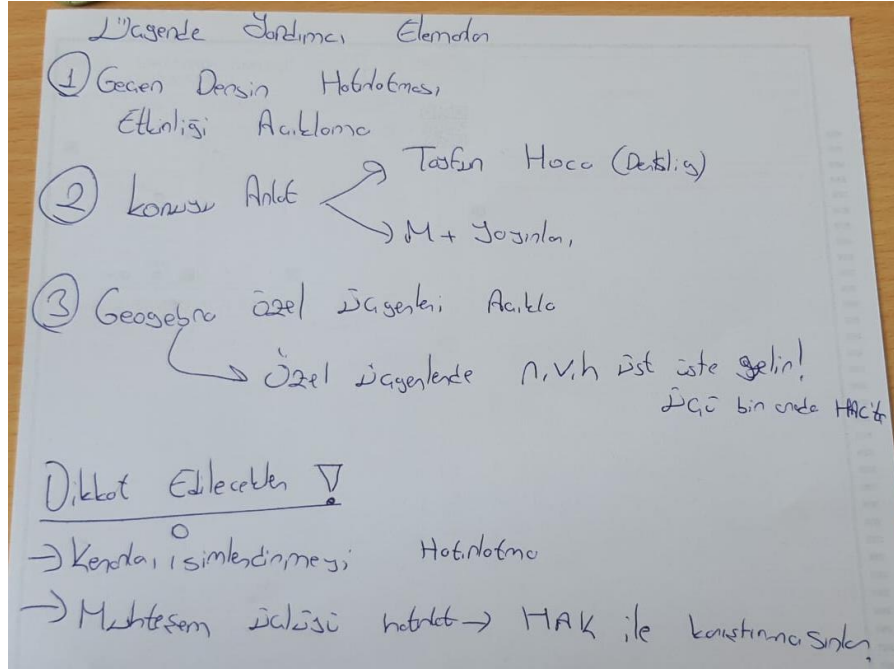 Üçgende Yardımcı Elemanlar
① Geçen Dersin Hatırlatması,
Etkinliği Açıklama
② Konuyu Anlat → Hoca
→ M+ Yayınları
③ Geogebra Özel Üçgenleri Açıkla
→ Özel üçgenlerde n,v,h üst üste gelir!
Üçü bir arada
Dikkat Edilecekler !
→ Kenarları isimlendirmeyi Hatırlatma
→ Muhteşem üçlüsü hatırlat → HAK ile karıştırmasınlar